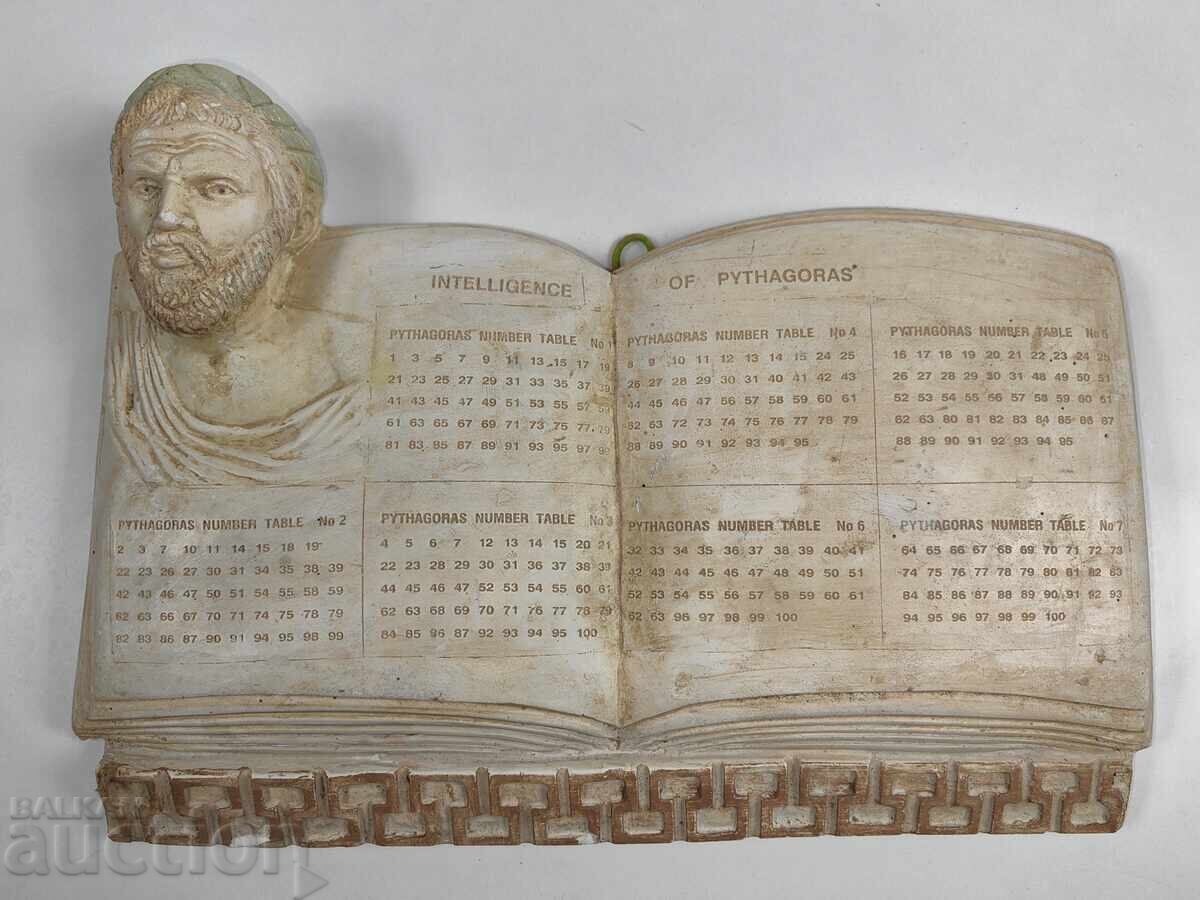 INTELLIGENCE OF PYTHAGORAS
PYTHAGORAS NUMBER TABLE No 1
1 3 5 7 9 11 13 15 17 19
21 23 25 27 29 31 33 35 37 39
41 43 45 47 49 51 53 55 57 59
61 63 65 67 69 71 73 75 77 79
81 83 85 87 89 91 93 95 97 99
PYTHAGORAS NUMBER TABLE No 2
2 3 7 10 11 14 15 18 19
22 23 26 27 30 31 34 35 38 39
42 43 46 47 50 51 54 55 58 59
62 63 66 67 70 71 74 75 78 79
82 83 86 87 90 91 94 95 98 99
PYTHAGORAS NUMBER TABLE No 3
4 5 6 7 12 13 14 15 20 21
22 23 28 29 30 31 36 37 38 39
44 45 46 47 52 53 54 55 60 61
62 63 68 69 70 71 76 77 78 79
84 85 86 87 92 93 94 95 100
PYTHAGORAS NUMBER TABLE No 4
8 9 10 11 12 13 14 15 24 25
26 27 28 29 30 31 40 41 42 43
44 45 46 47 56 57 58 59 60 61
62 63 72 73 74 75 76 77 78 79
88 89 90 91 92 93 94 95
PYTHAGORAS NUMBER TABLE No 5
16 17 18 19 20 21 22 23 24 25
26 27 28 29 30 31 48 49 50 51
52 53 54 55 56 57 58 59 60 61
62 63 80 81 82 83 84 85 86 87
88 89 90 91 92 93 94 95
PYTHAGORAS NUMBER TABLE No 6
32 33 34 35 36 37 38 39 40 41
42 43 44 45 46 47 48 49 50 51
52 53 54 55 56 57 58 59 60 61
62 63 96 97 98 99 100
PYTHAGORAS NUMBER TABLE No 7
64 65 66 67 68 69 70 71 72 73
74 75 76 77 78 79 80 81 82 83
84 85 86 87 88 89 90 91 92 93
94 95 96 97 98 99 100
BALKAN
auction